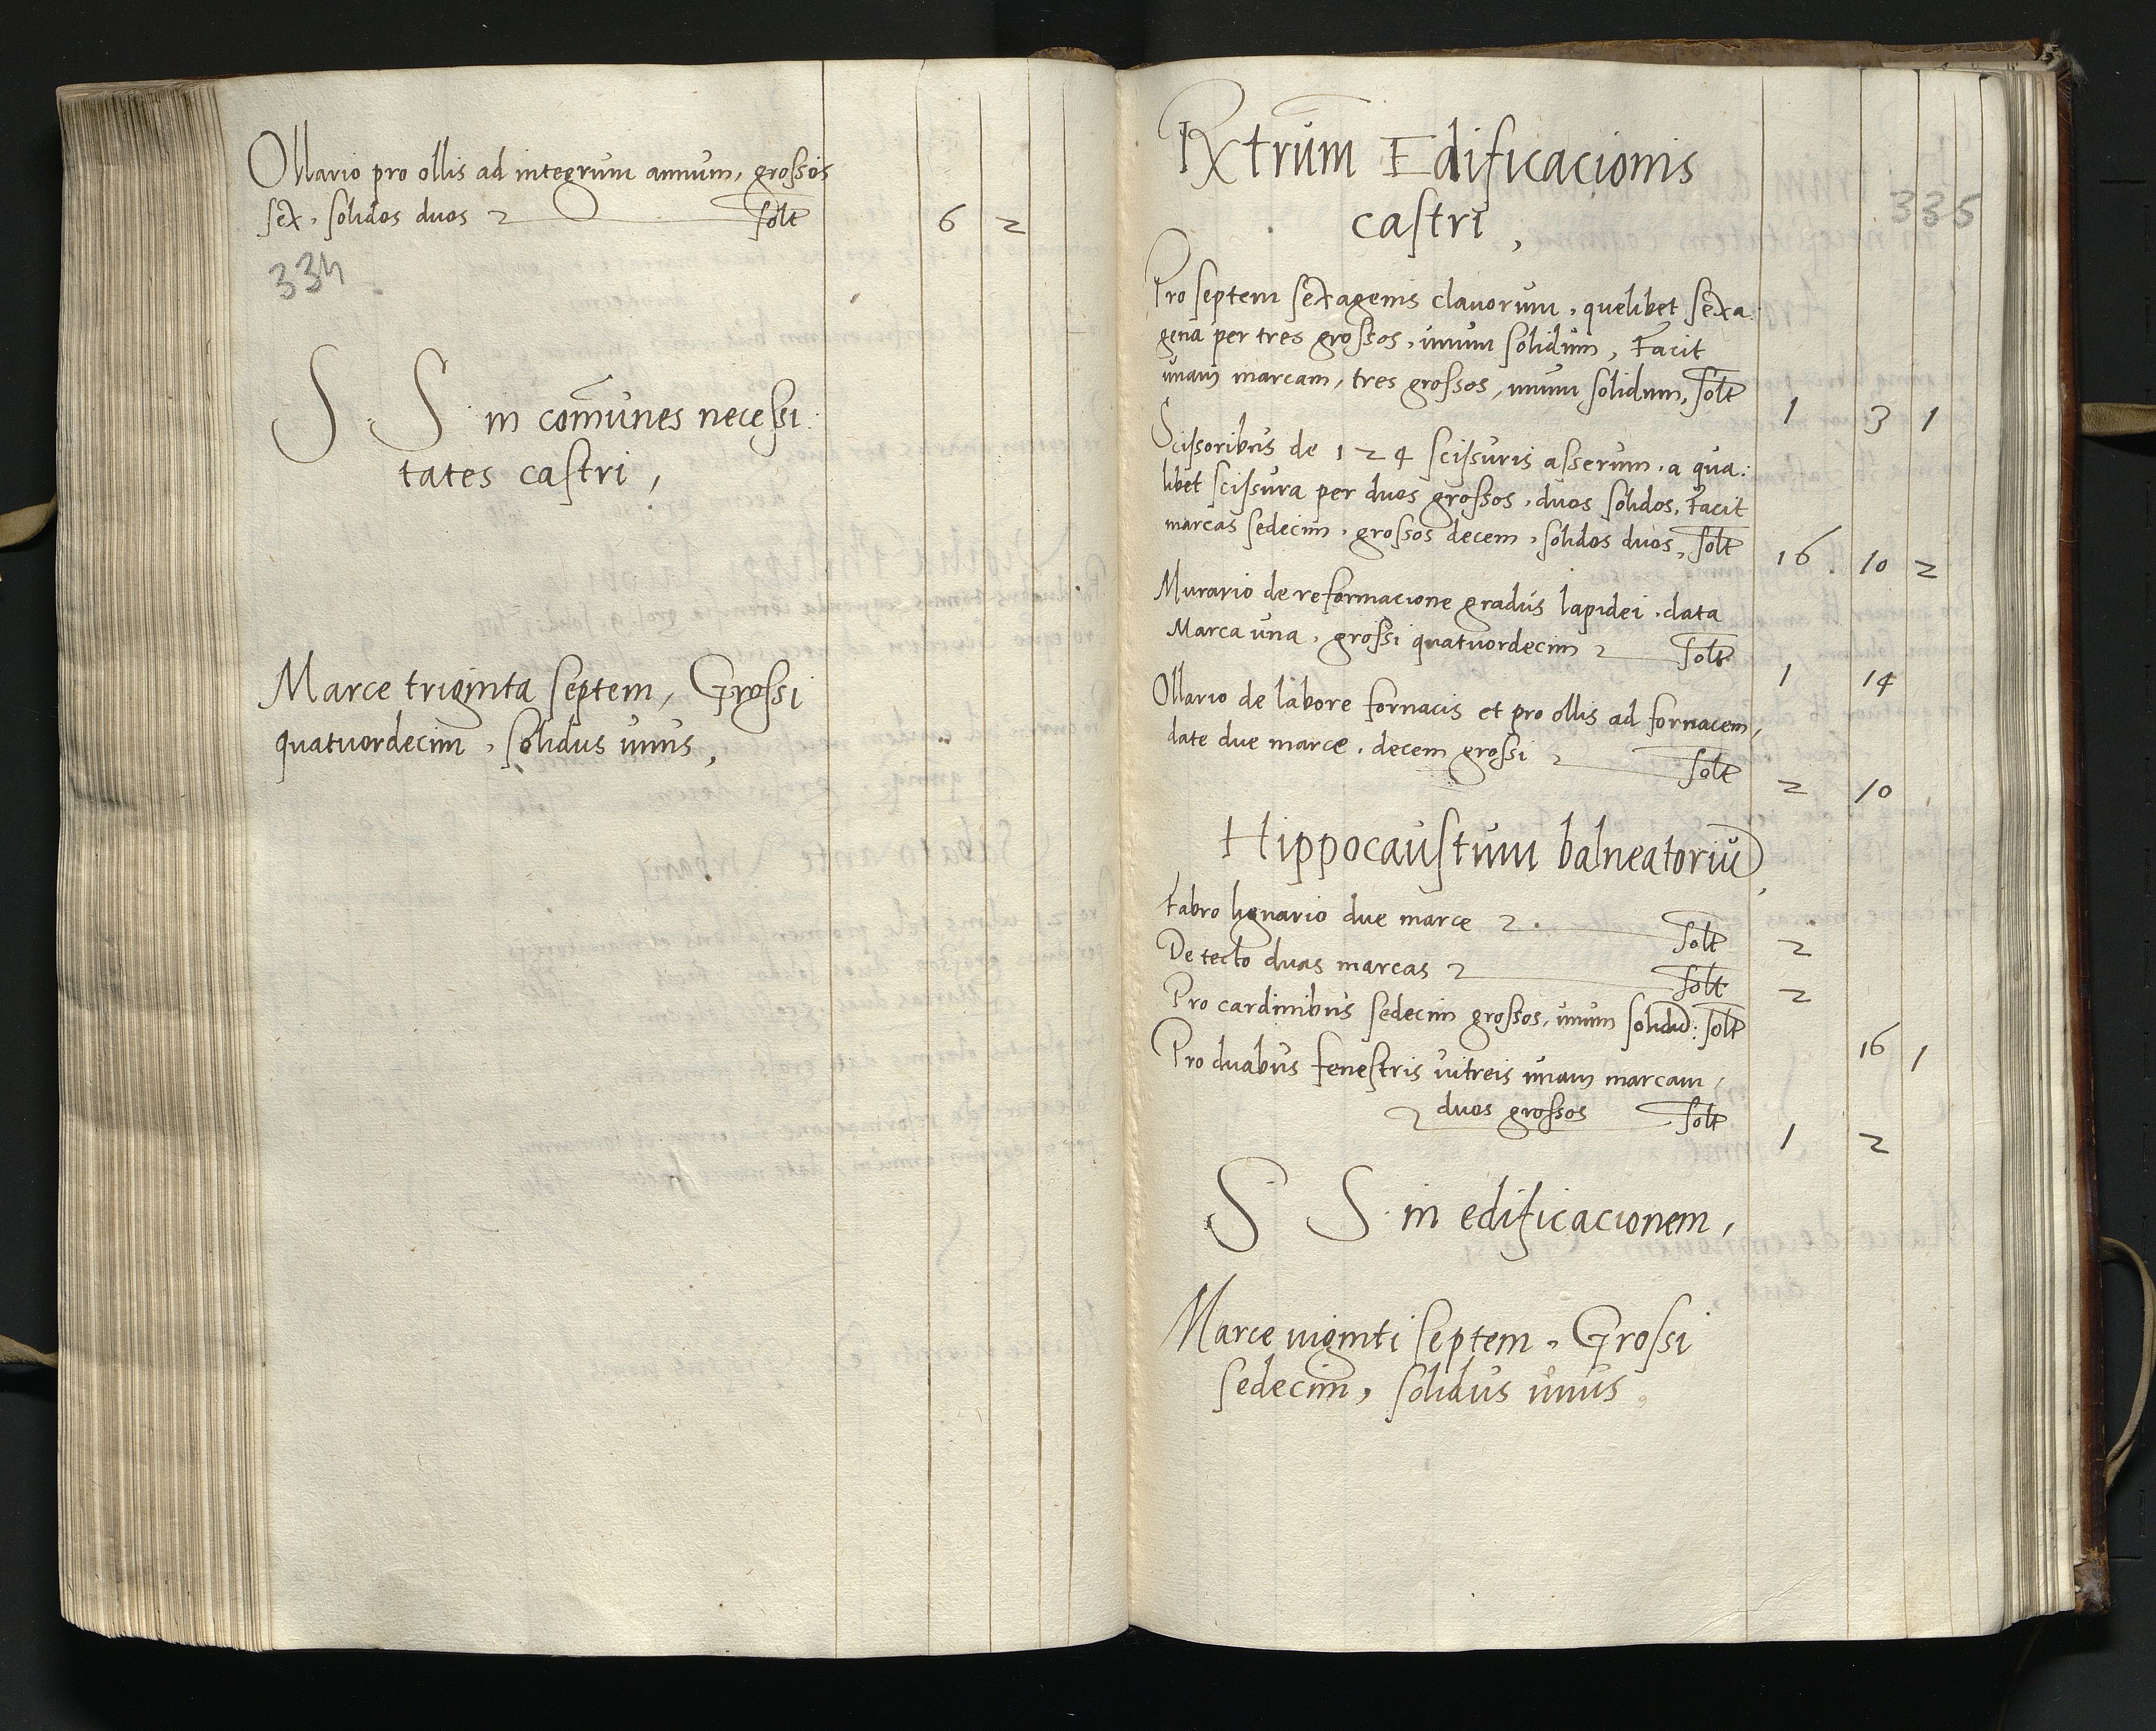 Ollario pro ollis ad integrum annum, grossos
sex, solidos duos solt 6 2
334
S S in com̄unes necessi
tates castri,
Marce triginta septem, Grossi
quatuordecim, solidus unus,
Rx̄trum Edificacionis
castri,
335
Pro septem sexagenis clavorum, quelibet sexa:
gena per tres grossos, unum solidum, Facit
unam marcam, tres grossos, unum solidum, solt 1 3 1
Scissoribus de 124 scissuris asserum, a qua:
libet scissura per duos grossos, duos solidos, Facit
marcas sedecim, grossos decem, solidos duos, solt 16 10 2
Murario de reformacione gradus lapidei, data
Marca una, grossi quatuordecim solt 1 14
Ollario de labore fornacis et pro ollis ad fornacem,
date due marce, decem grossi solt 2 10
Hippocaustum balneatoriū,
Fabro lignario due marce solt 2
De tecto duas marcas solt 2
Pro cardinibus sedecim grossos, unum solidū: solt 16 1
Pro duabus fenestris vitreis unam marcam,
duos grossos solt 1 2
S S in edificacionem,
Marce viginti septem, Grossi
sedecim, solidus unus